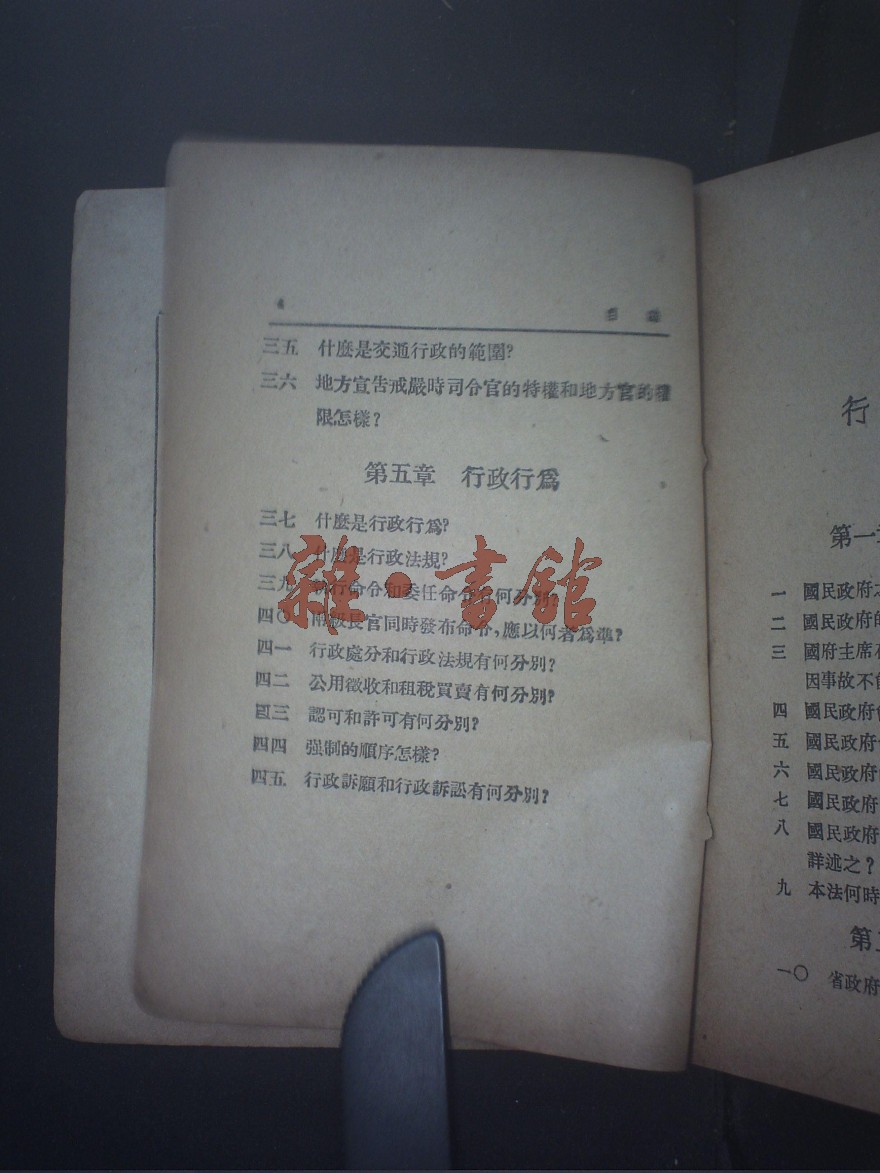 4 目錄
三五 什麼是交通行政的範圍?
三六 地方宣告戒嚴時司令官的特權和地方官的權
限怎樣?
第五章 行政行爲
三七 什麼是行政行爲?
三八 什麼是行政法規?
三九 執行命令和委任命令有何分別?
四〇 兩級長官同時發布命令,應以何者爲準?
四一 行政處分和行政法規有何分別?
四二 公用徵收和租稅買賣有何分別?
四三 認可和許可有何分別?
四四 强制的順序怎樣?
四五 行政訴願和行政訴訟有何分別?
雜·書館
行
第一
一 國民政府
二 國民政府
三 國府主席
因事故不
四 國民政府
五 國民政府
六 國民政府
七 國民政府
八 國民政府
詳述之?
九 本法何時
第
一〇 省政府